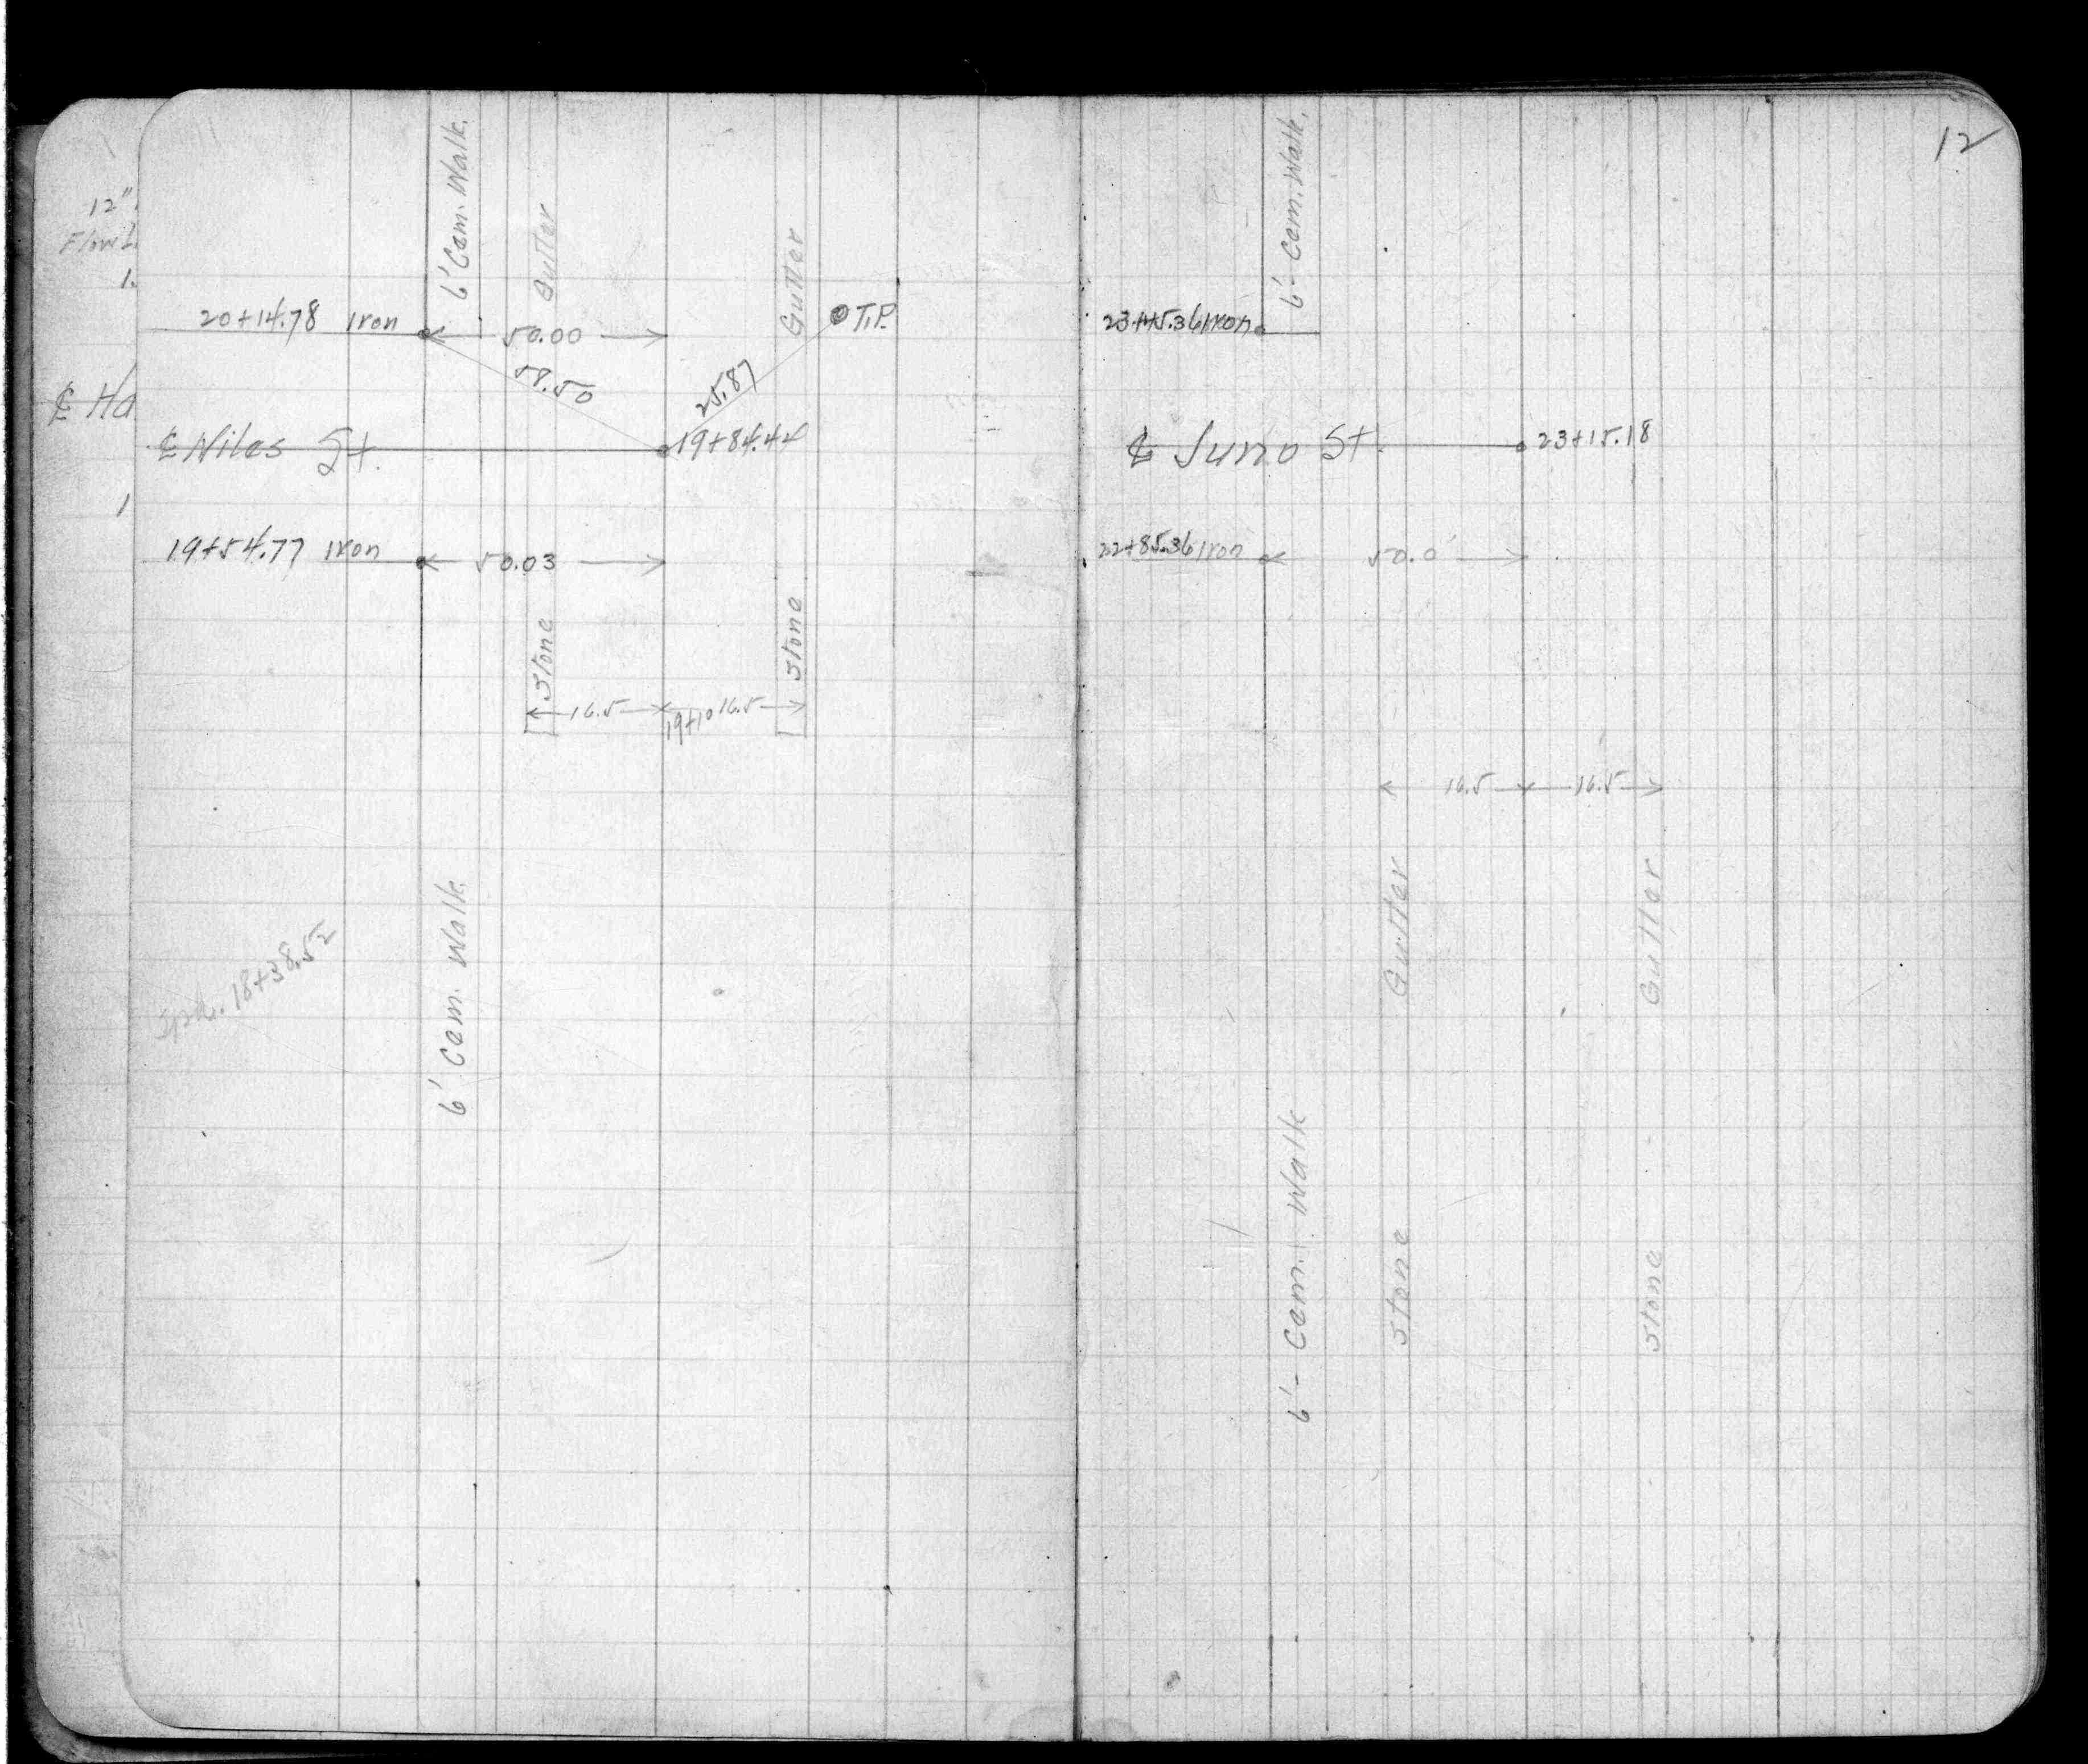 12
12"
Flow L
1.
℄ Ha
1
6' Cem. Walk.
Gutter
Gutter
20+14.78 Iron
50.00
T.P.
58.50
25.87
℄ Niles St.
19+84.44
19+54.77 Iron
50.03
Stone
Stone
16.5
19+10
16.5
6' Cem. Walk
18+38.52
6'- Cem. Walk.
23+45.36 Iron
℄ Juno St.
23+15.18
22+85.36 Iron
50.0
16.5
16.5
Gutter
Gutter
6'- Cem. Walk
Stone
Stone